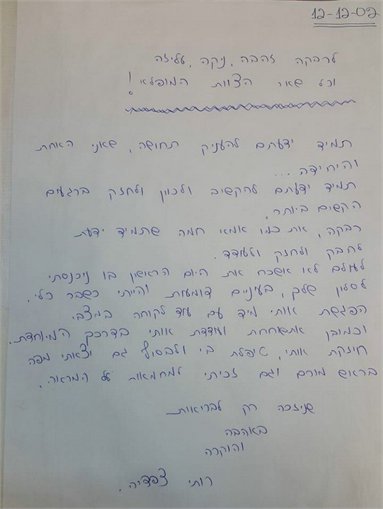 12-12-02
לרבקה זהבה, ניקה, עליזה
וכל שאר הצוות המופלא!
תמיד ידעתם להעניק תחושה, שאני האחת
והיחידה...
תמיד ידעתם להקשיב ולכוון ולחזק ברגעים
הקשים ביותר.
רבקה, את כמו אמא חמה שתמיד ידעת
לחבק ולחזק ולעודד.
לעולם לא אשכח את היום הראשון בו נכנסתי
לסלון שלך, בעיניים דומעות והייתי כשבר כלי.
הפגשת אותי מיד עם עוד לקוחה במצבי.
וכמובן את שוחחת ועודדת אותי בדרכך המיוחדת.
חיזקת אותי, טיפלת בי ולבסוף גם יצאתי מפה
בראש מורם וגם זכיתי למחמאות על המראה.
שנזכה רק לבריאות
באהבה
והוקרה
רותי צפדיה.